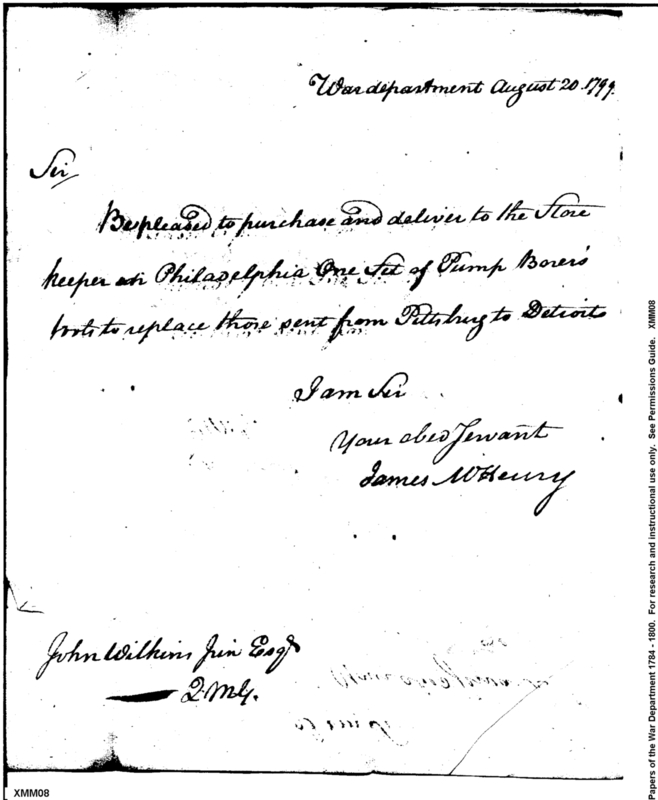 War department August 20. 1799.
Sir
Be pleased to purchase and deliver to the Store
keeper at Philadelphia One Set of Pump Borers
tools to replace those sent from Pittsburg to Detroit
I am Sir
Your obed Servant
James McHenry
John Wilkins Jun Esqr
Q.M.G.
XMM08
Papers of the War Department 1784 - 1800. For research and instructional use only. See Permissions Guide. XMM08